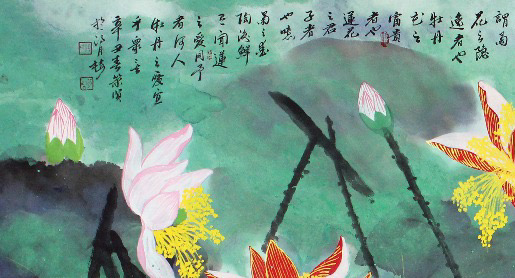 謂菊
花之隱
逸者也
牡丹
花之
富貴
者也
蓮花
之君
子者
也噫
菊之愛
陶後鮮
有聞蓮
之愛同予
者何人
牡丹之愛宜
乎眾矣
辛丑春